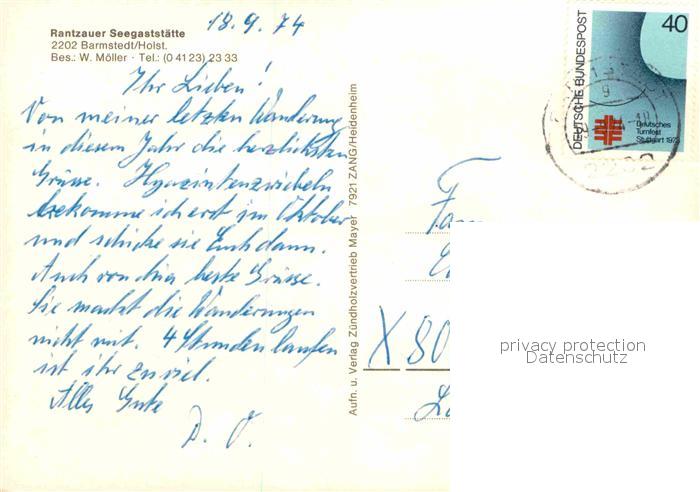 18.9.74
Rantzauer Seegaststätte
2202 Barmstedt/Holst.
Bes.: W. Möller · Tel.: (0 41 23) 23 33
Ihr Lieben!
Von meiner letzten Wanderung
in diesem Jahr die herzlichsten
Grüsse. Hyazintenzwiebeln
bekomme ich erst im Oktober
und schicke sie Euch dann.
Auch von Lina beste Grüsse.
Sie macht die Wanderungen
nicht mit. 4 Stunden laufen
ist ihr zuviel.
Alles Gute
Aufn. u. Verlag Zündholzvertrieb Mayer 7921 ZANG/Heidenheim
DEUTSCHE BUNDESPOST
40
Deutsches
Turnfest
Stuttgart 1973
2202
Fam
X 80
privacy protection
Datenschutz